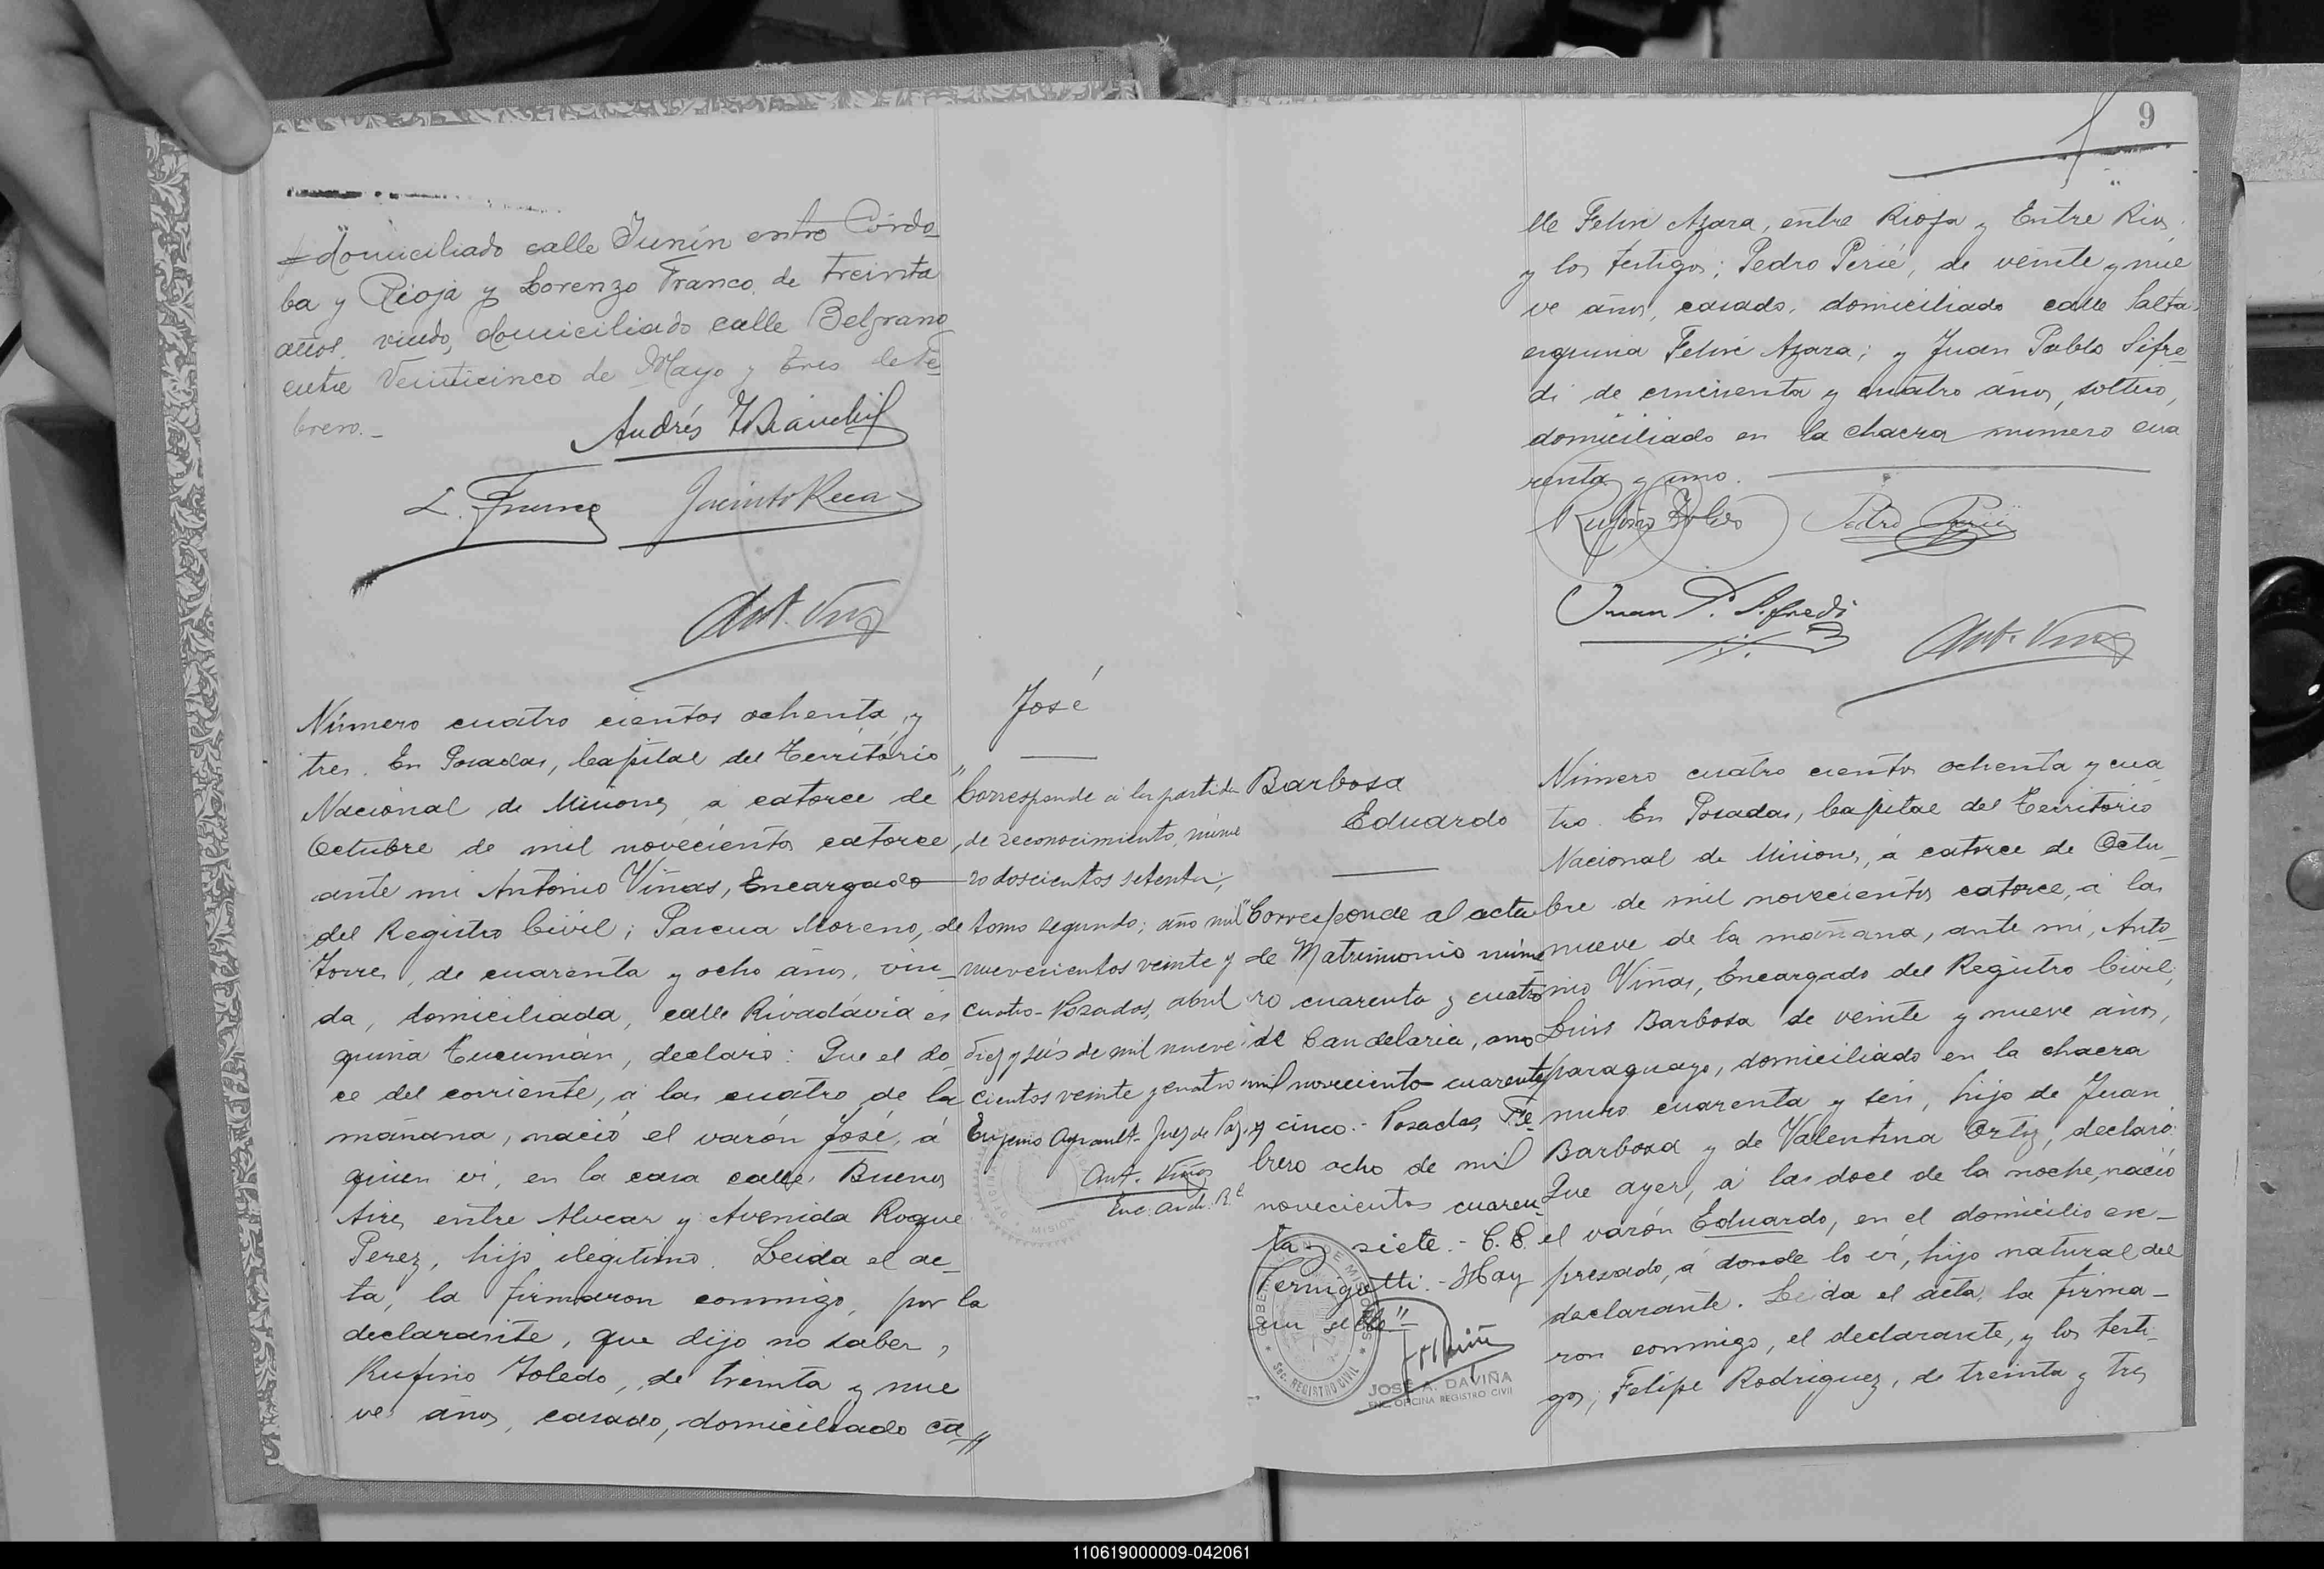 domiciliado calle Junín entre Córdo-
ba y Rioja y Lorenzo Franco, de treinta
años, viudo, domiciliado calle Belgrano
entre Veinticinco de Mayo y tres de Fe-
brero.-
Andrés
L. Franco Jacinto Reca
Ant. Viñas
Número cuatro cientos ochenta y
tres. En Posadas, Capital del Territorio
Nacional de Misiones, a catorce de
Octubre de mil novecientos catorce,
ante mi Antonio Viñas, Encargado
del Registro Civil; Pascua Moreno, de
Torres, de cuarenta y ocho años, viu-
da, domiciliada, calle Rivadavia es
quina Tucumán, declaró: Que el do
ce del corriente, á las cuatro de la
mañana, nació el varón José, á
quien ví, en la casa calle Buenos
Aires entre Alvear y Avenida Roque
Perez, hijo ilegitimo. Leida el ac-
ta, la firmaron conmigo, por la
declarante, que dijo no saber,
Rufino Toledo, de treinta y nue
ve años, casado, domiciliado ca//
José
"Corresponde á la partida
de reconocimiento, núme
ro doscientos setenta;
tomo segundo; año mil
nuevecientos veinte y
cuatro- Posadas, abril
diez y seis de mil nueve
cientos veinte y cuatro
Eugenio Juez de Paz.
Ant. Viñas
9
lle Felix Azara, entre Rioja y Entre Rios,
y los testigos; Pedro Perié, de veinte y nue
ve años, casado, domiciliado calle Salta
esquina Felix Azara; y Juan Pablo Sifre-
di de cincuenta y cuatro años, soltero,
domiciliado en la chacra numero cua
renta y uno.
Rufino Toledo Pedro Perié
Juan P. Sifredi
Ant. Viñas
Barbosa
Eduardo
"Corresponde al acta
de Matrimonio núme
ro cuarenta y cuatro
de Candelaria, año
mil novecientos cuarenta
y cinco.- Posadas, Fe-
brero ocho de mil
novecientos cuaren-
ta y siete.- C. E.
Hay
un sello"
GOBERNACION DE MISIONES
SEC. REGISTRO CIVIL
JOSÉ A. DAVIÑA
ENC. OFICINA REGISTRO CIVIL
Número cuatro cientos ochenta y cua
tro. En Posadas, Capital del Territorio
Nacional de Misiones, á catorce de Octu-
bre de mil novecientos catorce, á las
nueve de la mañana, ante mi, Anto-
nio Viñas, Encargado del Registro Civil;
Luis Barbosa de veinte y nueve años,
paraguayo, domiciliado en la chacra
numero cuarenta y seis, hijo de Juan
Barbosa y de Valentina Ortiz, declaró:
Que ayer, á las doce de la noche, nació
el varón Eduardo, en el domicilio ex-
presado, á donde lo ví, hijo natural del
declarante. Leida el acta, la firma-
ron conmigo, el declarante, y los testi-
gos; Felipe Rodriguez, de treinta y tres
110619000009-042061